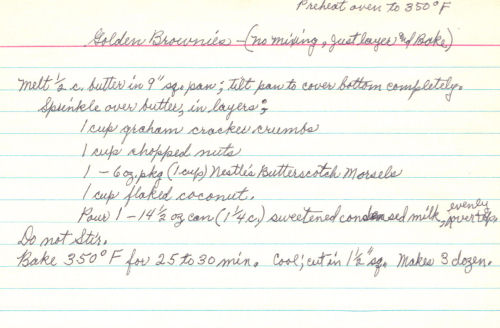 Preheat oven to 350°F
Golden Brownies - (no mixing, just layer and Bake)
Melt 1/2 c. butter in 9" sq. pan; tilt pan to cover bottom completely.
Sprinkle over butter, in layers:
1 cup graham cracker crumbs
1 cup chopped nuts
1 - 6 oz. pkg (1 cup) Nestle's Butterscotch Morsels
1 cup flaked coconut.
Pour 1 - 14 1/2 oz can (1 1/4 c.) sweetened condensed milk, evenly over top.
Do not Stir.
Bake 350°F for 25 to 30 min. Cool; cut in 1 1/2" sq. Makes 3 dozen.